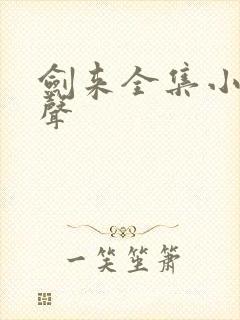 劍来全集小
聲
一笑笙箫